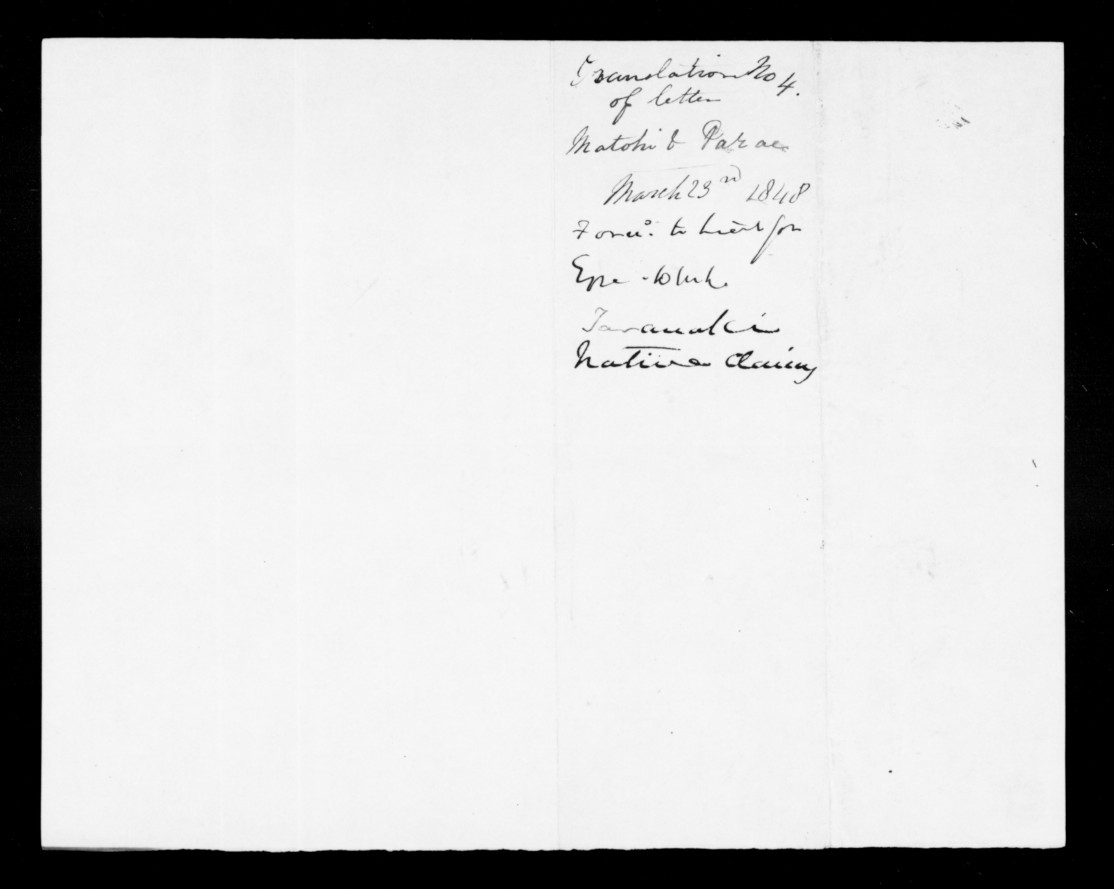 Translation No 4.
of letter
Matohi &
March 23rd 1848
to Lieut Gov
Eyre
Taranaki
Native Claims